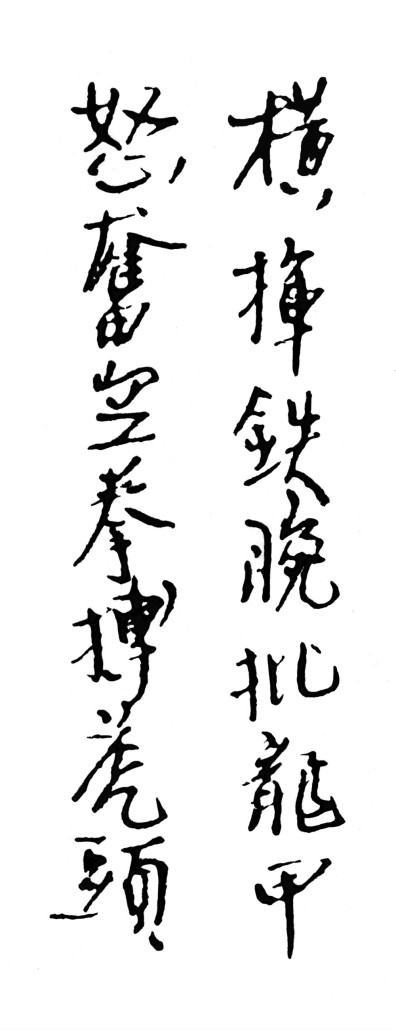 橫揮鉄腕批龍甲
怒奮空拳搏虎頭